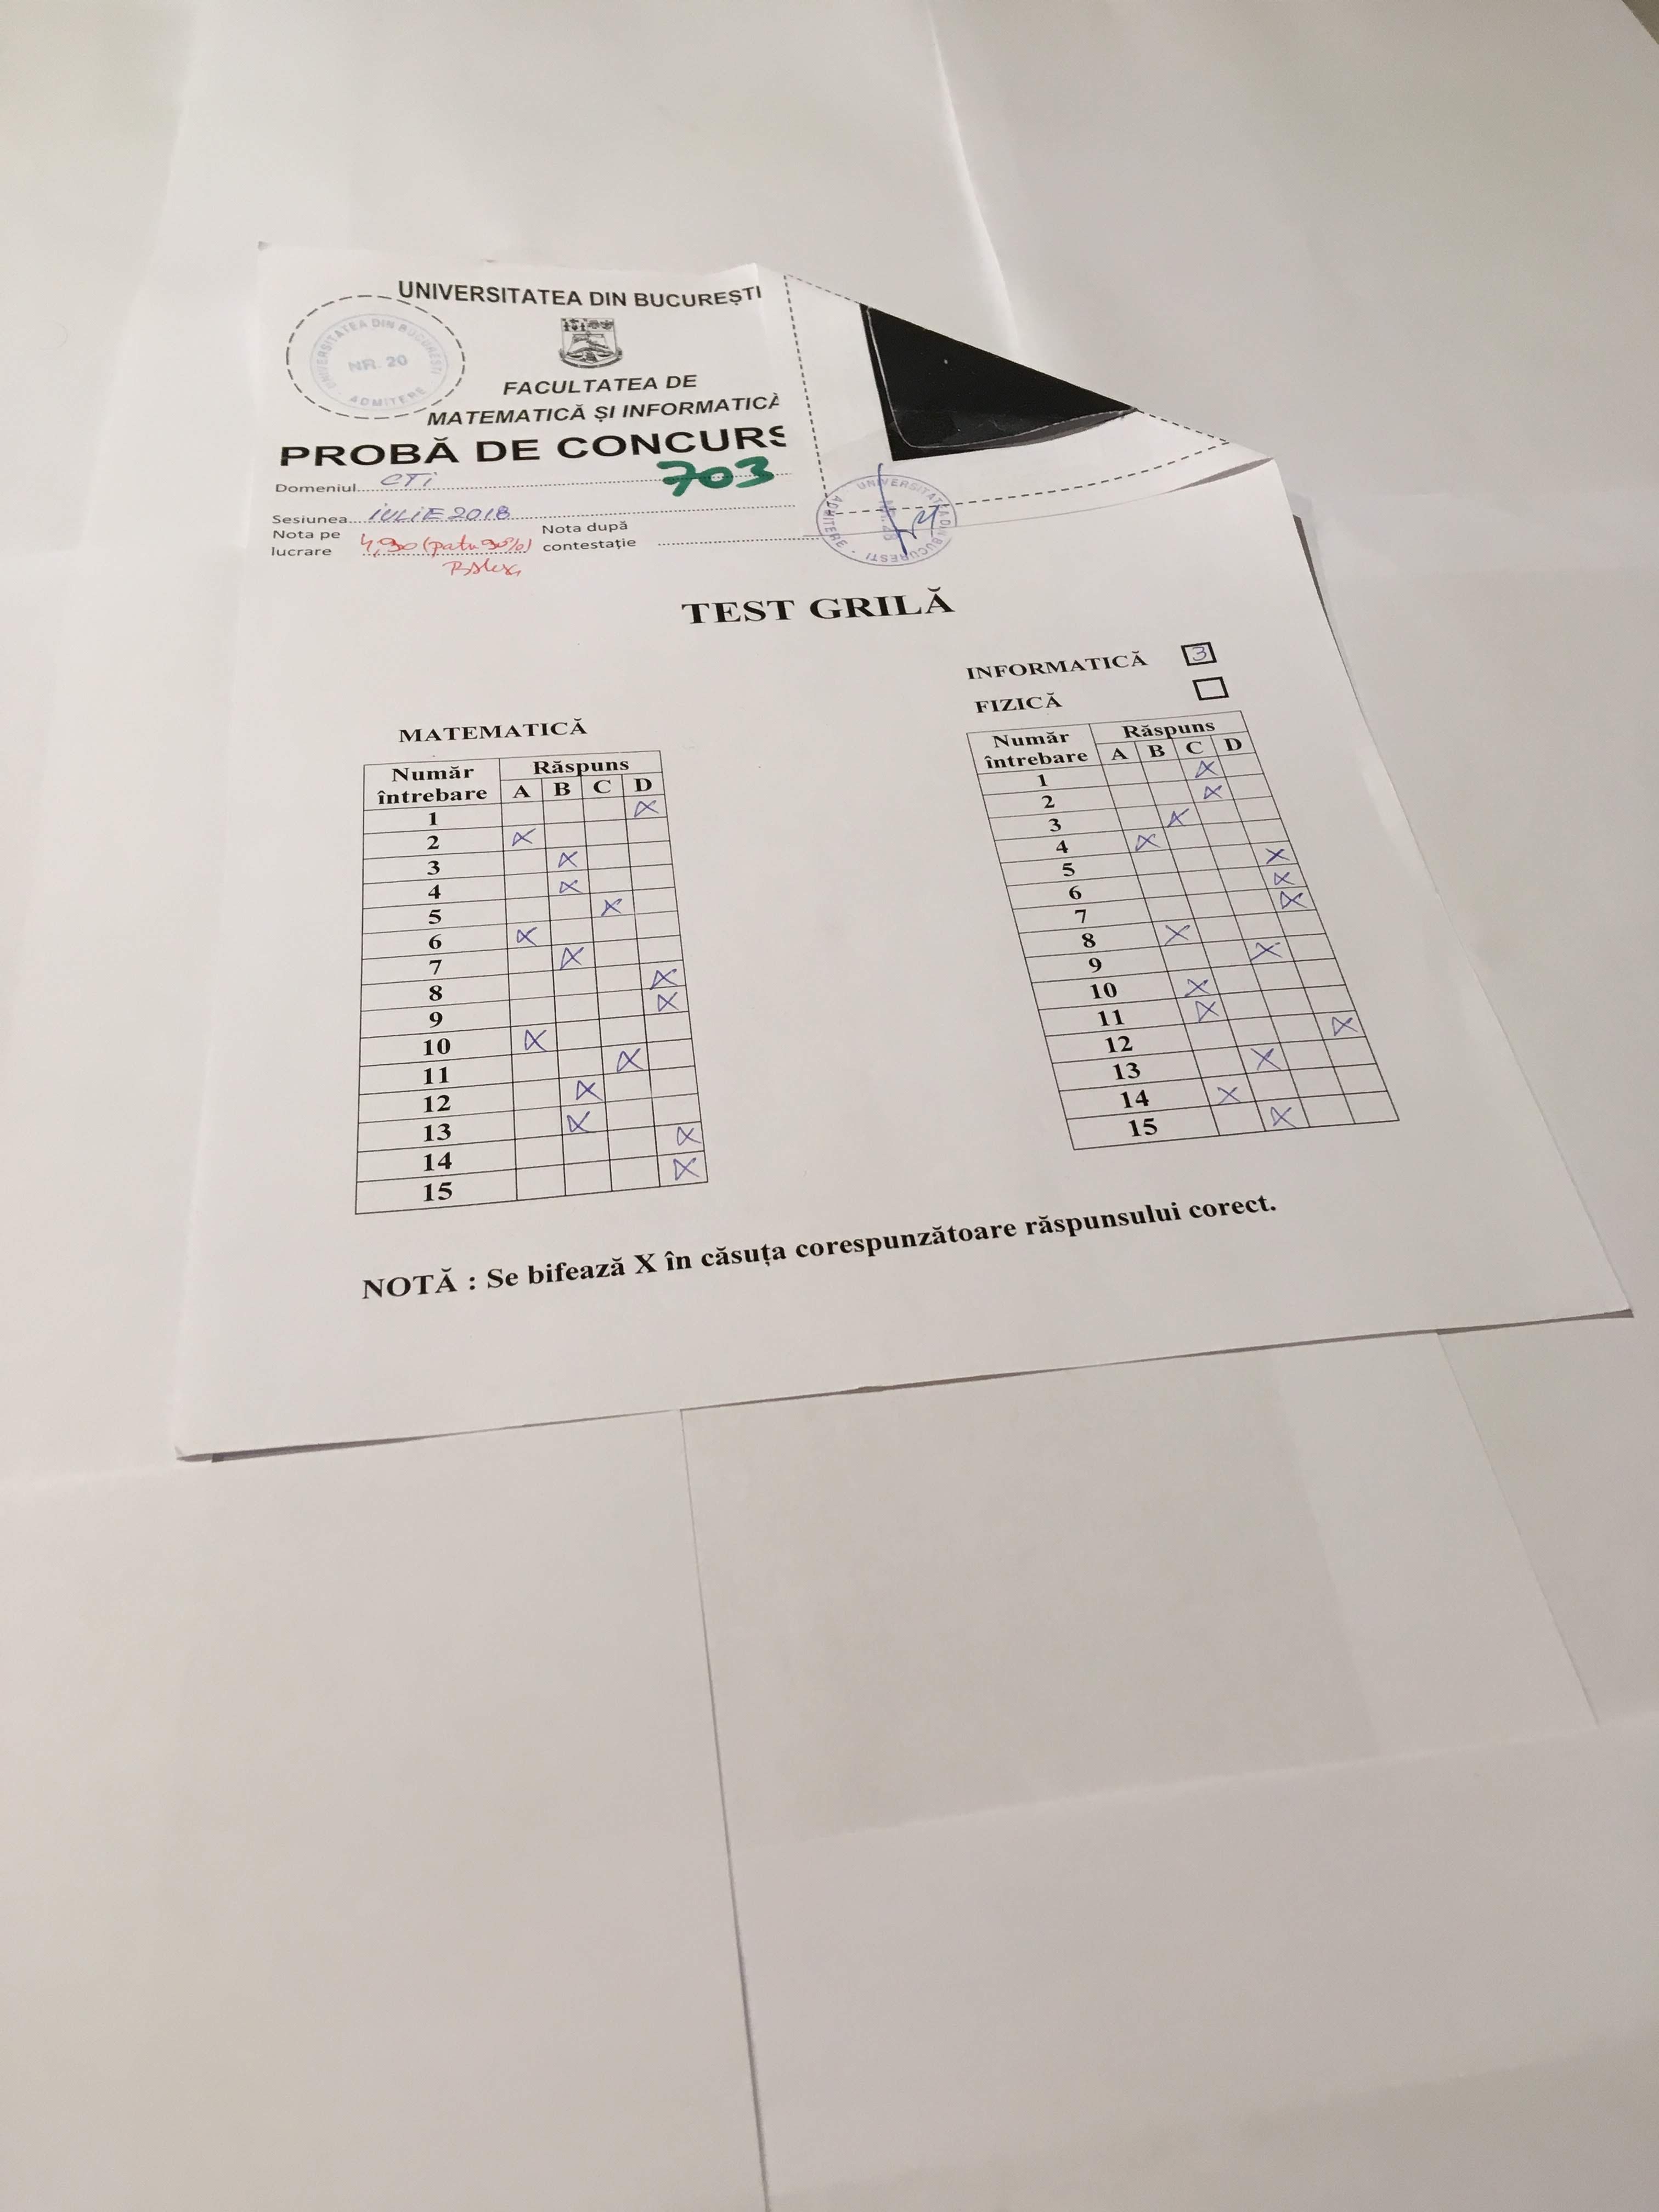 UNIVERSITATEA DIN BUCUREȘTI
UNIVERSITATEA DIN BUCUREȘTI
NR. 20
ADMITERE
FACULTATEA DE
MATEMATICĂ ȘI INFORMATICĂ
PROBĂ DE CONCURS
703
Domeniul CTi
Sesiunea iULiE 2018
Nota pe lucrare 4,90 (patru 90%)
Nota după contestație
UNIVERSITATEA DIN BUCURESTI
ADMITERE
TEST GRILĂ
INFORMATICĂ 3
FIZICĂ
MATEMATICĂ
Număr întrebare Răspuns
A B C D
1 X
2 X
3 X
4 X
5 X
6 X
7 X
8 X
9 X
10 X
11 X
12 X
13 X
14 X
15 X
Număr întrebare Răspuns
A B C D
1 X
2 X
3 X
4 X
5 X
6 X
7 X
8 X
9 X
10 X
11 X
12 X
13 X
14 X
15 X
NOTĂ : Se bifează X în căsuța corespunzătoare răspunsului corect.